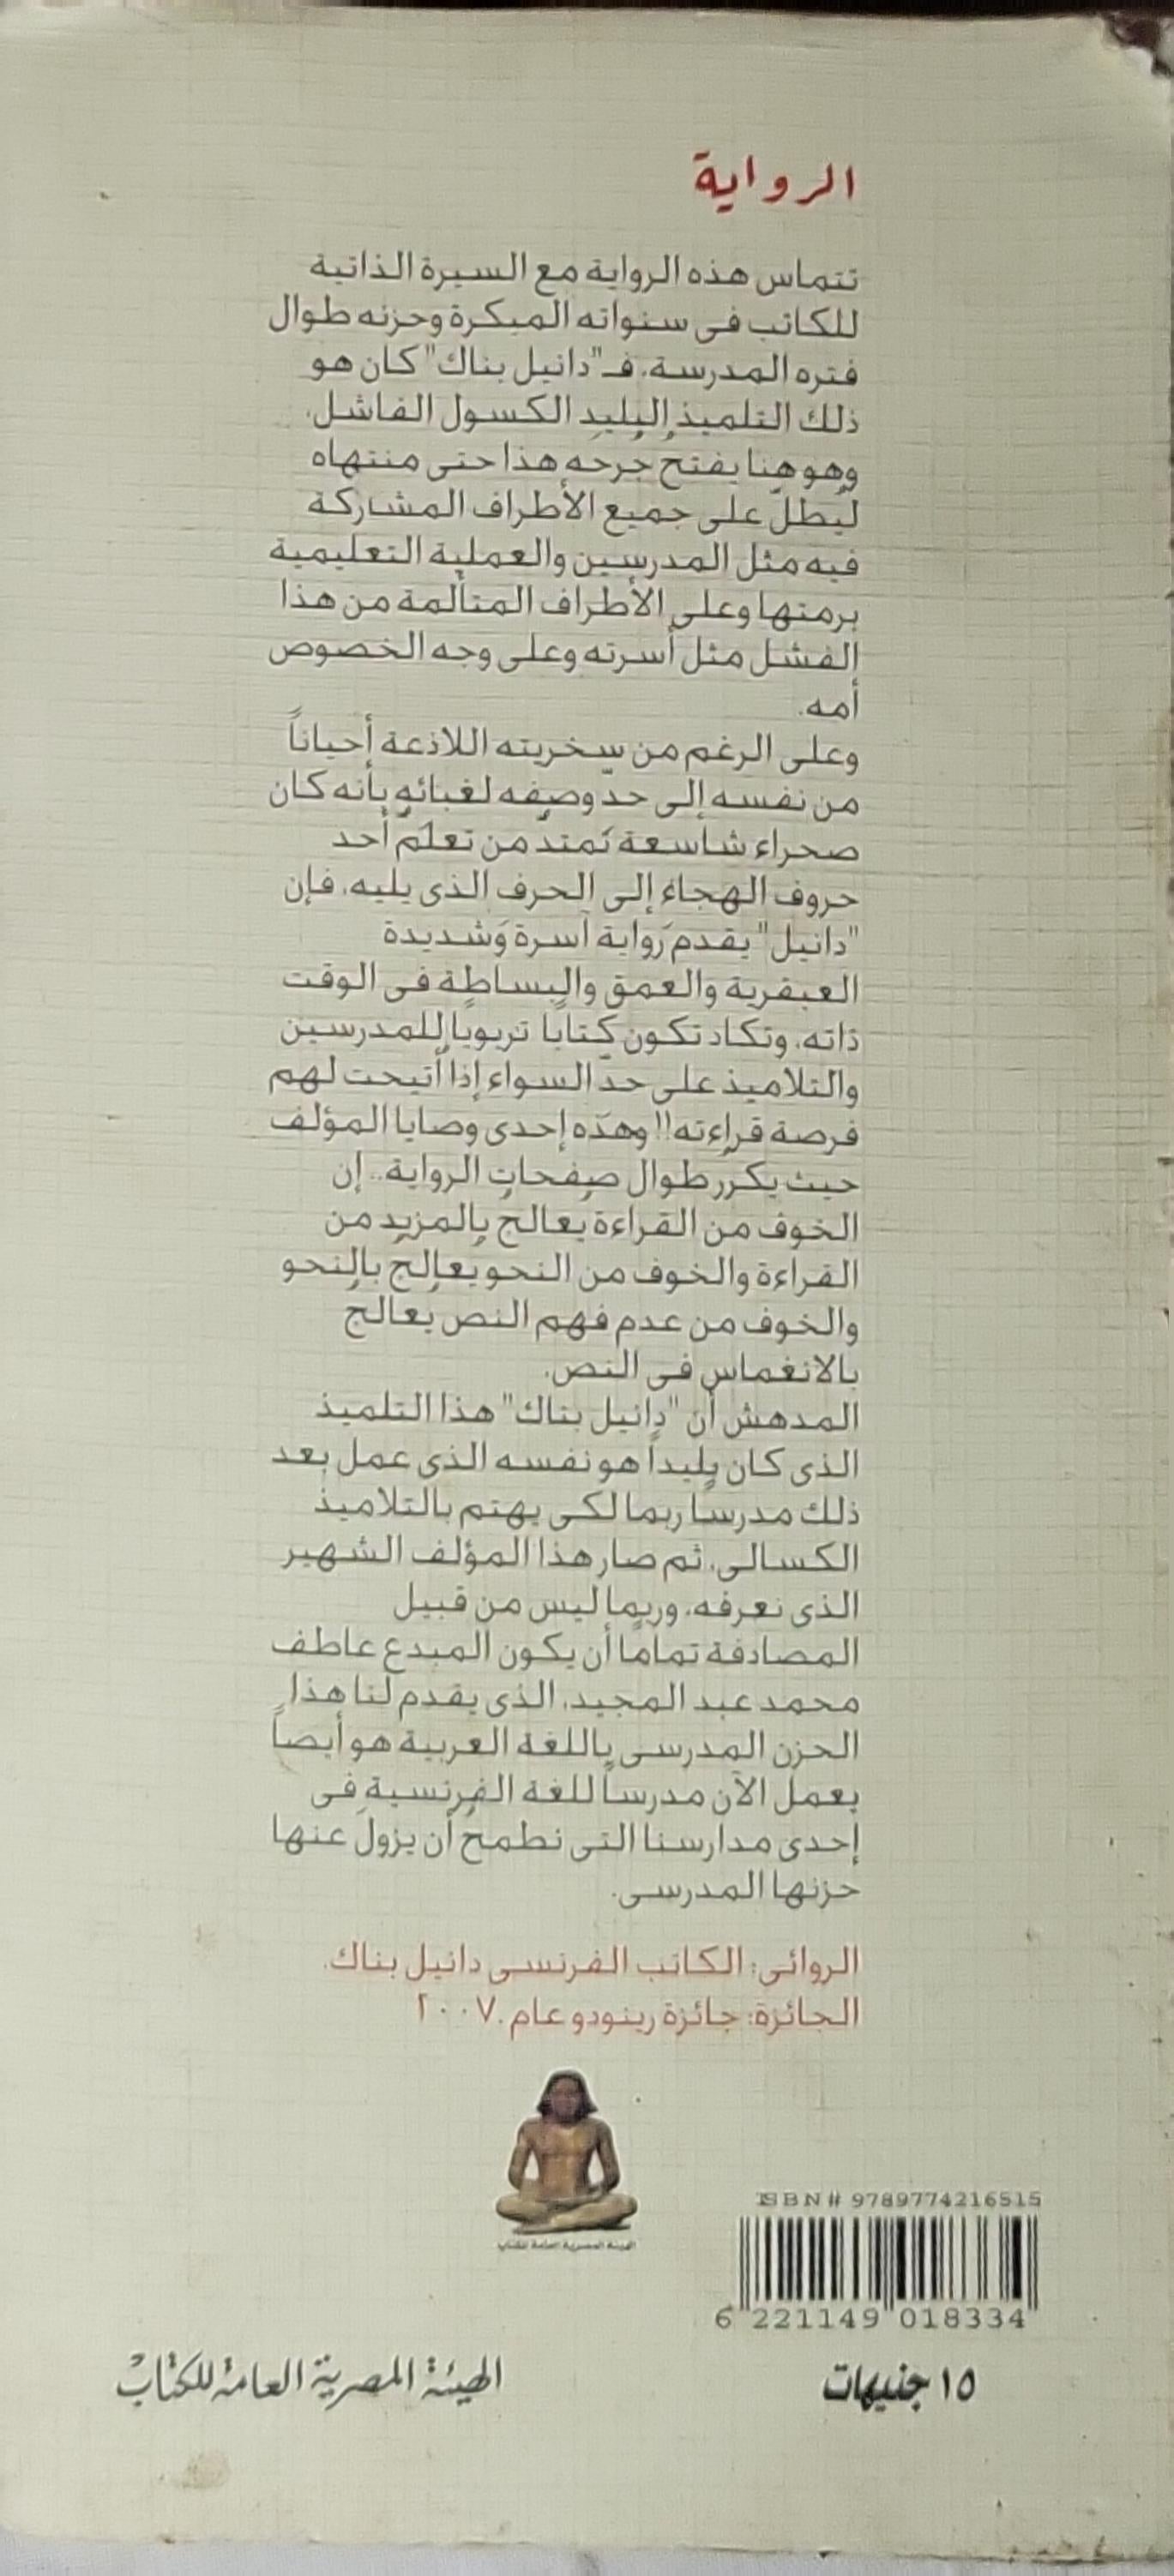 الرواية
تتماس هذه الرواية مع السيرة الذاتية
للكاتب فى سنواته المبكرة وحزنه طوال
فتره المدرسة. فـ"دانيل بناك" كان هو
ذلك التلميذ البليد الكسول الفاشل،
وهو هنا يفتح جرحه هذا حتى منتهاه
ليُطلّ على جميع الأطراف المشاركة
فيه مثل المدرسين والعملية التعليمية
برمتها وعلى الأطراف المتألمة من هذا
الفشل مثل أسرته وعلى وجه الخصوص
أمه.
وعلى الرغم من سخريته اللاذعة أحياناً
من نفسه إلى حدّ وصفه لغبائه بأنه كان
صحراء شاسعة تمتد من تعلّم أحد
حروف الهجاء إلى الحرف الذى يليه، فإن
"دانيل" يقدم رواية آسرة وشديدة
العبقرية والعمق والبساطة فى الوقت
ذاته، وتكاد تكون كتابًا تربويا للمدرسين
والتلاميذ على حدّ السواء إذا أتيحت لهم
فرصة قراءته!! وهذه إحدى وصايا المؤلف
حيث يكرر طوال صفحات الرواية.. إن
الخوف من القراءة يعالج بالمزيد من
القراءة والخوف من النحو يعالج بالنحو
والخوف من عدم فهم النص يعالج
بالانغماس فى النص.
المدهش أن "دانيل بناك" هذا التلميذ
الذى كان بليداً هو نفسه الذى عمل بعد
ذلك مدرسًا ربما لكى يهتم بالتلاميذ
الكسالى، ثم صار هذا المؤلف الشهير
الذى نعرفه، وربما ليس من قبيل
المصادفة تمامًا أن يكون المبدع عاطف
محمد عبد المجيد، الذى يقدم لنا هذا
الحزن المدرسى باللغة العربية هو أيضاً
يعمل الآن مدرساً للغة الفرنسية فى
إحدى مدارسنا التى نطمح أن يزول عنها
حزنها المدرسى.
الروائى: الكاتب الفرنسى دانيل بناك.
الجائزة: جائزة رينودو عام ٢٠٠٧.
ISBN# 9789774216515
الهيئة المصرية العامة للكتاب
6 221149 018334
١٥ جنيهات
الهيئة المصرية العامة للكتاب